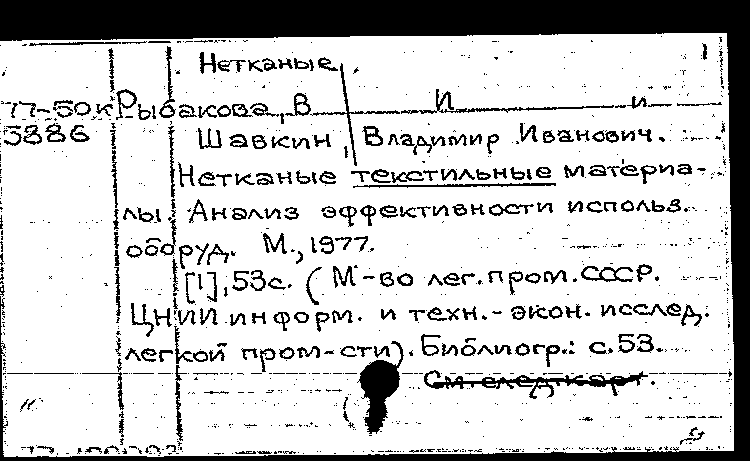 Нетканые 1
77-50к Рыбакова, В И и
5886 Шавкин, Владимир Иванович.
Нетканые текстильные материа-
лы. Анализ эффективности использ.
оборуд. М., 1977.
[1], 53с. (М-во лег. пром. СССР.
ЦНИИ информ. и техн.-экон. исслед.
легкой пром-сти). Библиогр.: с. 53.
См. след. карт.